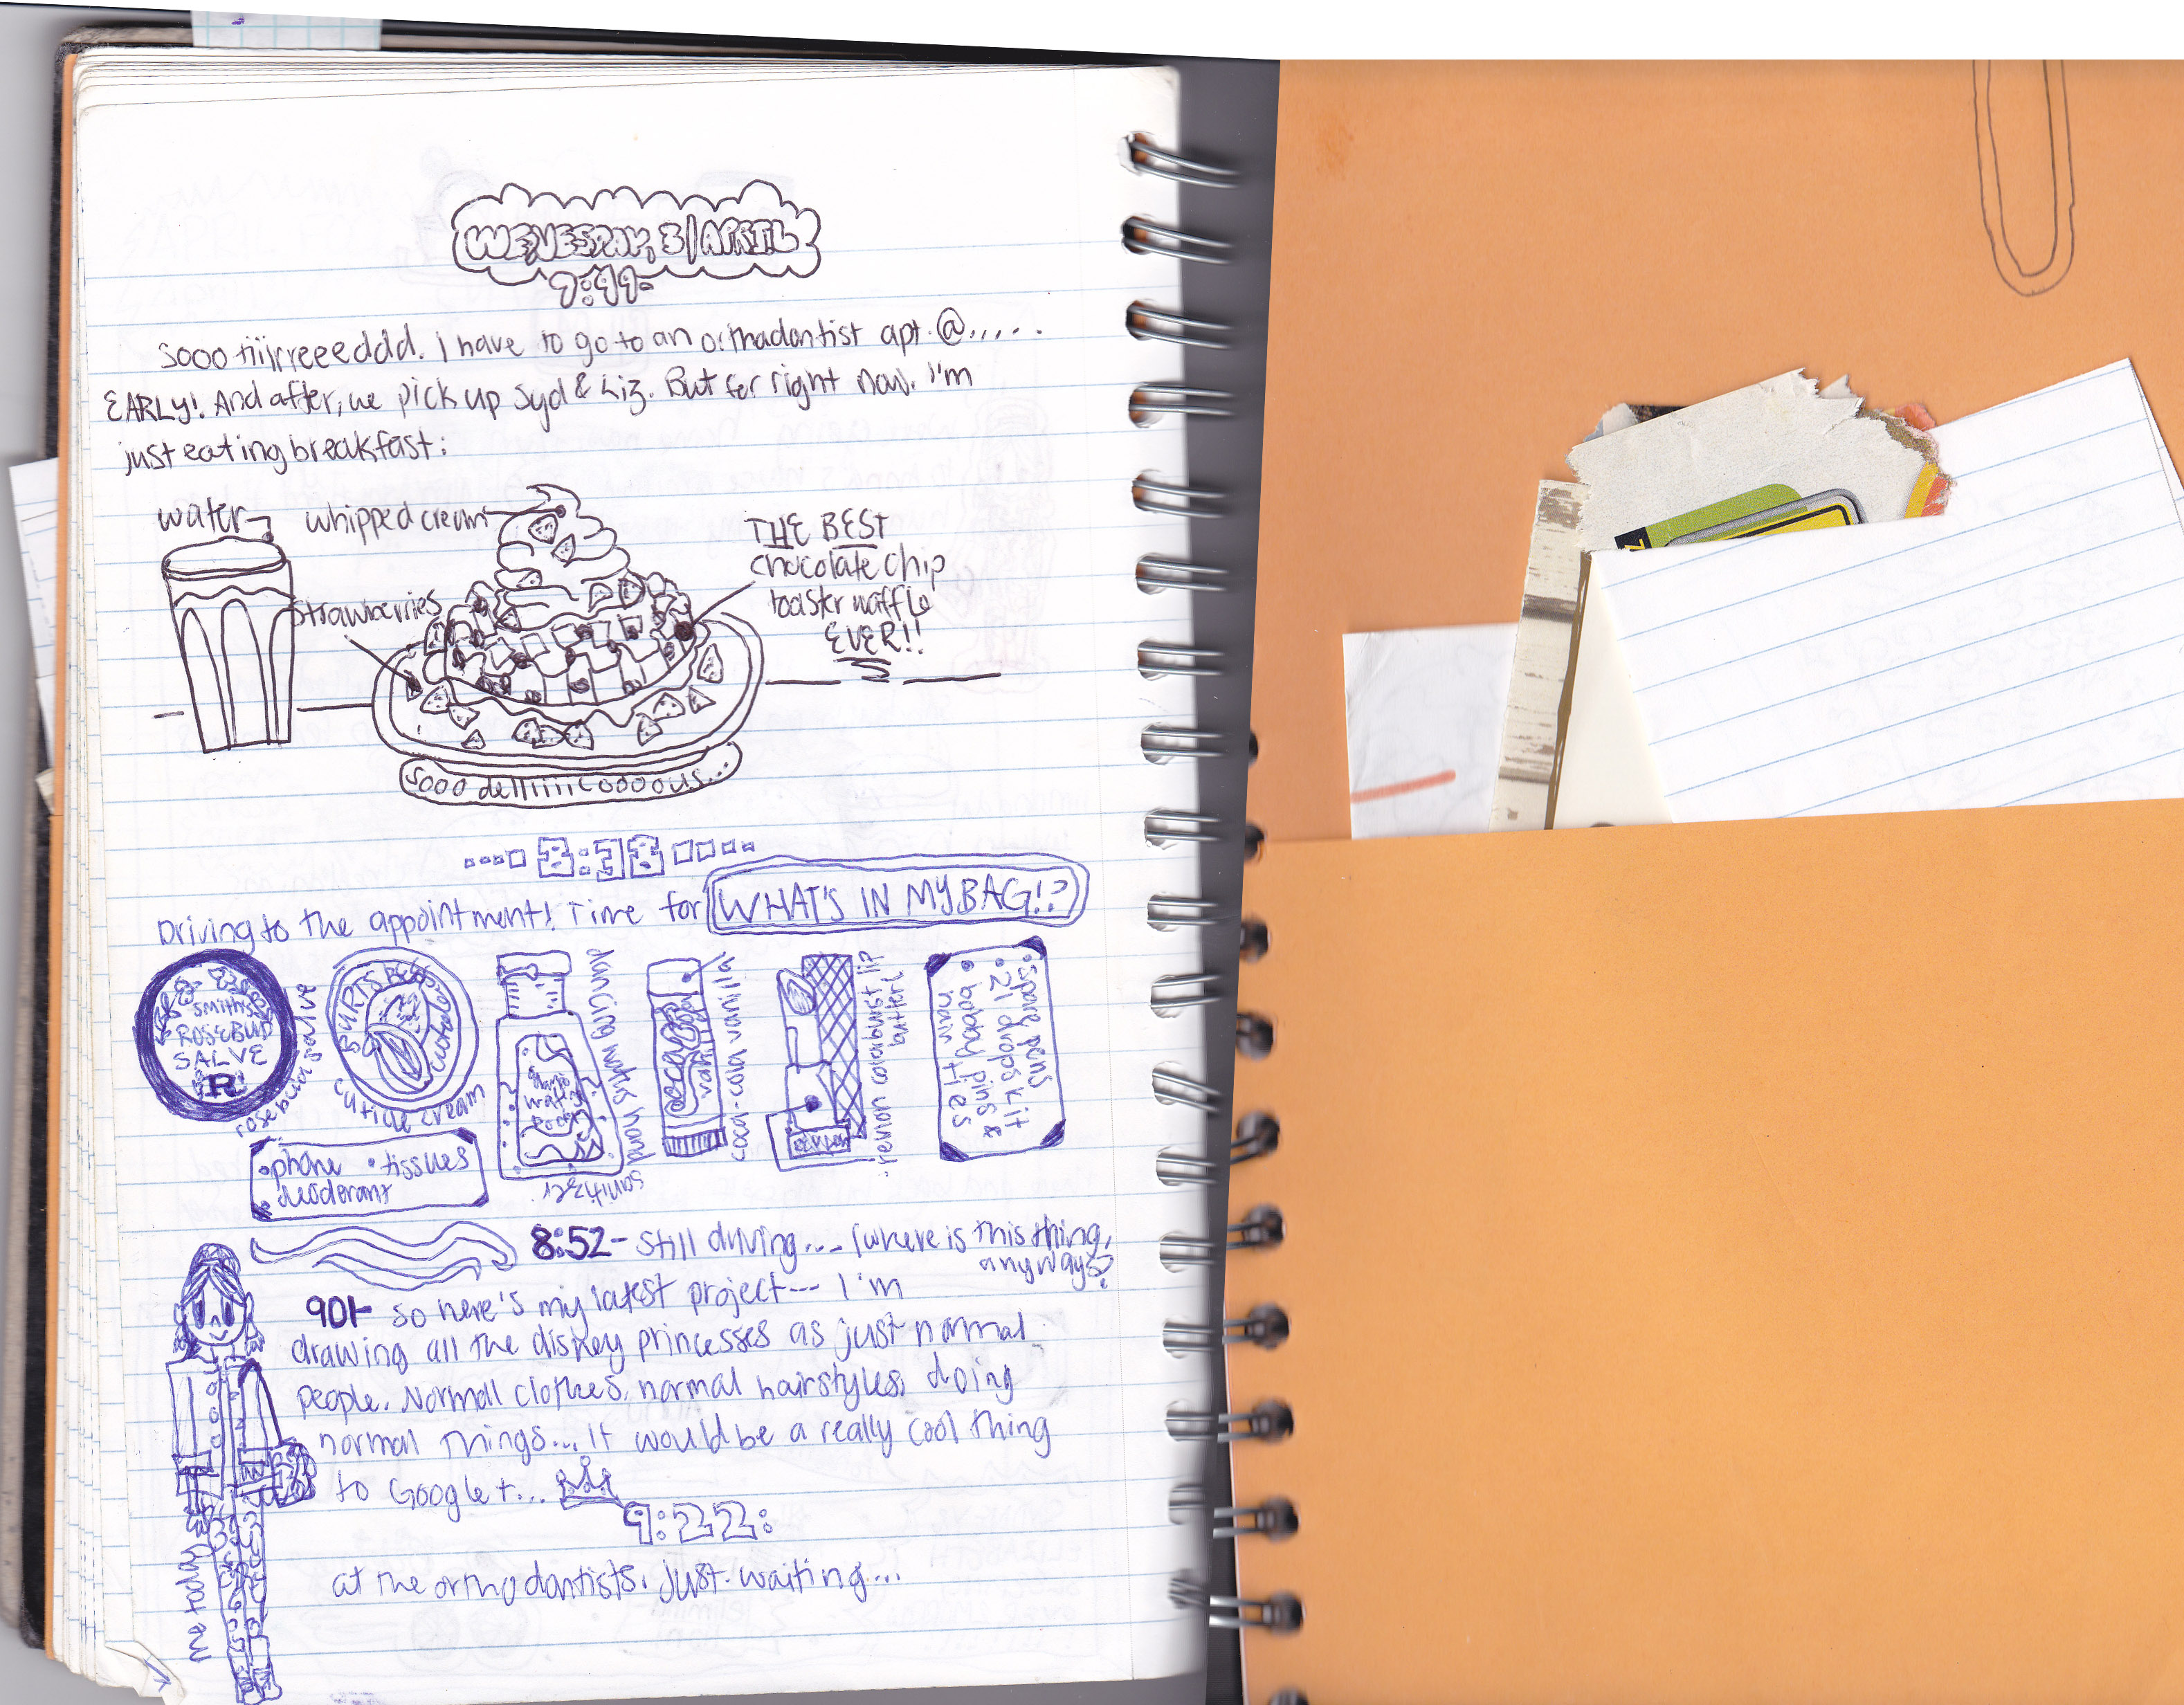 WEDNESDAY, 3/APRIL
7:49-
Sooo tiiirreeeddd. I have to go to an orthadontist apt. @.....
EARLY! And after, we pick up Syd & Liz. But for right now, I'm
just eating breakfast:
water
whipped cream
strawberries
THE BEST
chocolate chip
toaster waffle
EVER!!
sooo delllliiiicoooous...
8:38
Driving to the appointment! Time for WHAT'S IN MY BAG!?
smith's
ROSEBUD
SALVE
R
rosebud salve
BURTS BEES
cuticle cream
dancing waters hand
sanitizer
vanilla
coca-cola vanilla
revlon colorburst lip
butter!
• spare pens
• 21 drops kit
• bobby pins &
hair ties
• phone • tissues
• deoderant
8:52- still driving... (where is this thing,
anyways?
901- so here's my latest project--- I'm
drawing all the disney princesses as just normal
people. Normal clothes, normal hairstyles, doing
normal things... It would be a really cool thing
to Google +...
9:22:
at the orthodontists. Just waiting...
me today